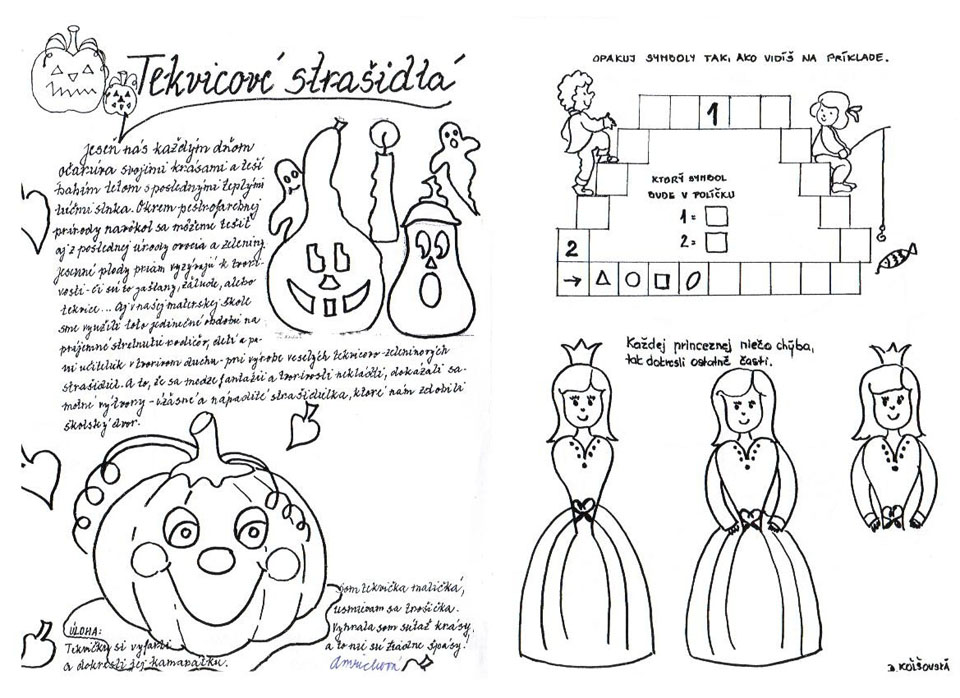 Tekvicové strašidlá
Jeseň nás každým dňom
očarúva svojimi krásami a teší
babím letom s poslednými teplými
lúčmi slnka. Okrem pestrofarebnej
prírody navôkol sa môžeme tešiť
aj z poslednej úrody ovocia a zeleniny.
Jesenné plody priam vyzývajú k tvori-
vosti - či sú to gaštany, žalude, alebo
tekvice... Aj v našej materskej škole
sme využili toto jedinečné obdobie na
príjemné stretnutie rodičov, detí a pa-
ní učiteliek v tvorivom duchu - pri výrobe veselých tekvicovo-zeleninových
strašidiel. A to, že sa medze fantázii a tvorivosti nekladú, dokázali sa-
motné výtvory - úžasné a nápadité strašidielka, ktoré nám zdobili
školský dvor.
Som tekvička maličká,
usmievam sa trošička.
Vyhrala som súťaž krásy,
a to nie sú žiadne špásy!
ÚLOHA:
Tekvičku si vyfarbi
a dokresli jej kamarátku.
OPAKUJ SYMBOLY TAK, AKO VIDÍŠ NA PRÍKLADE.
1
KTORÝ SYMBOL
BUDE V POLÍČKU
1 =
2 =
2
Každej princeznej niečo chýba,
tak dokresli ostatné časti.
D. KOLŠOVSKÁ